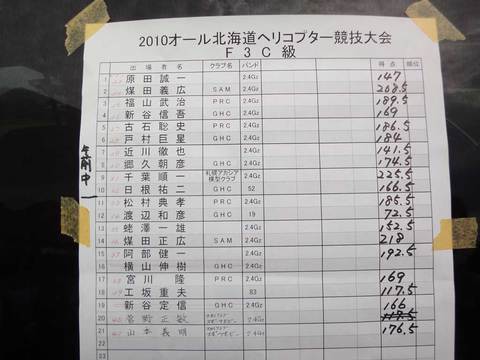 2010オール北海道ヘリコプター競技大会
F3C級
出場者名 クラブ名 バンド 得点 順位
1 原田誠一 2.4Gz 147
2 煤田義広 SAM 2.4Gz 208.5
3 福山武治 PRC 2.4Gz 189.5
4 新谷信吾 GHC 2.4Gz 169
5 古石聡史 PRC 2.4Gz 186.5
6 戸村巨星 GHC 2.4Gz 184
7 近川徹也 2.4Gz 141.5
8 郷久朝彦 GHC 2.4Gz 174.5
9 千葉順一 札幌アカシア模型クラブ 2.4Gz 225.5
10 日根祐二 GHC 52 166.5
11 松村典孝 PRC 2.4Gz 185.5
12 渡辺和彦 GHC 19 72.5
13 蛯澤一雄 2.4Gz 152.5
14 煤田正広 SAM 2.4Gz 218
15 阿部健一 2.4Gz 192.5
16 横山伸樹 GHC 2.4Gz
17 宮川隆 PRC 2.4Gz 169
18 工坂重夫 83 117.5
19 新谷定信 GHC 2.4Gz 166
20 菅野正敏 2.4Gz
21 山本義明 2.4Gz 176.5
午前中一